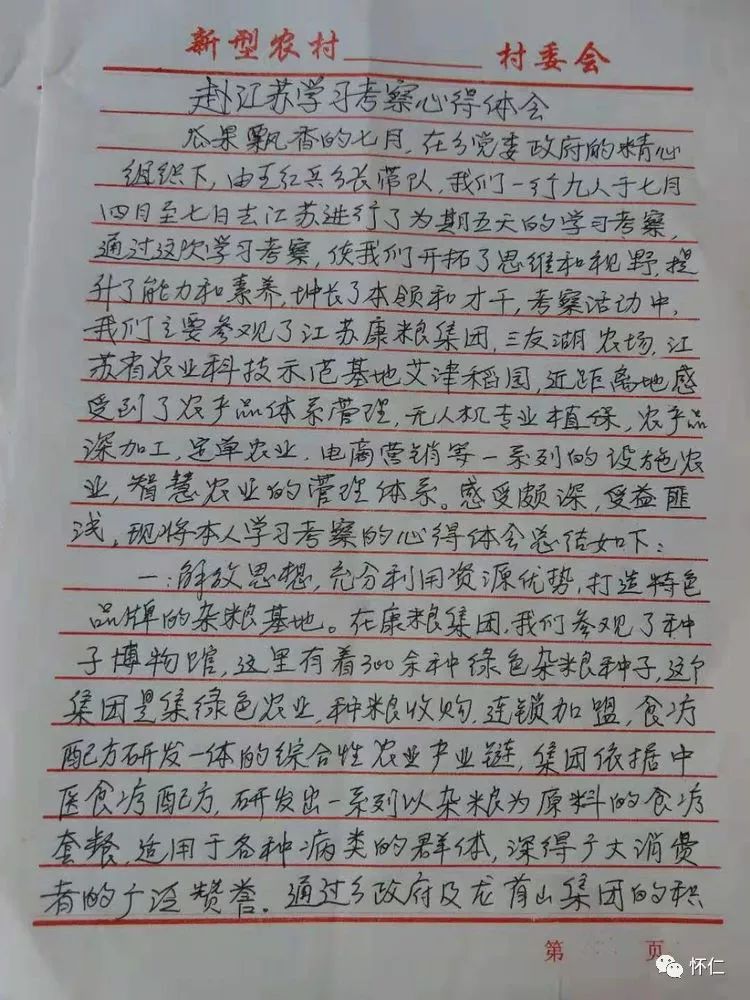 新型农村 村委会
赴江苏学习考察心得体会
瓜果飘香的七月，在乡党委政府的精心
组织下，由王红兵乡长带队，我们一行九人于七月
四日至七日去江苏进行了为期五天的学习考察，
通过这次学习考察，使我们开拓了思维和视野，提
升了能力和素养，增长了本领和才干，考察活动中，
我们主要参观了江苏康粮集团，三友湖农场，江
苏省农业科技示范基地艾津稻园，近距离地感
受到了农产品体系管理，无人机专业植保，农产品
深加工，定单农业，电商营销等一系列的设施农
业，智慧农业的管理体系。感受颇深，受益匪
浅，现将本人学习考察的心得体会总结如下：
一：解放思想，充分利用资源优势，打造特色
品牌的杂粮基地。在康粮集团，我们参观了种
子博物馆，这里有着300余种绿色杂粮种子，这个
集团是集绿色农业，种粮收购，连锁加盟，食疗
配方研发一体的综合性农业产业链，集团依据中
医食疗配方，研发出一系列以杂粮为原料的食疗
套餐，适用于各种病类的群体，深得广大消费
者的广泛赞誉。通过乡政府及龙首山集团的积
第 页
怀仁